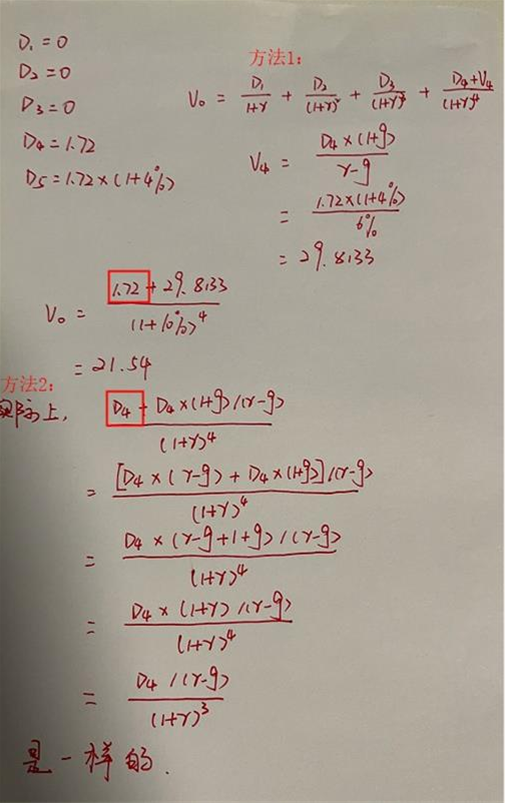 D₁ = 0
D₂ = 0
D₃ = 0
D₄ = 1.72
D5 = 1.72×(1+4%)
方法1:
V₀ = D₁/(1+r) + D₂/(1+r)² + D₃/(1+r)³ + (D₄+V₄)/(1+r)⁴
V₄ = D₄×(1+g)/(r-g)
= 1.72×(1+4%)/6%
= 29.8133
V₀ = (1.72+29.8133)/(1+10%)⁴
= 21.54
方法2:
实际上, (D₄+D₄×(1+g)/(r-g))/(1+r)⁴
= [D₄×(r-g)+D₄×(1+g)]/(r-g)/(1+r)⁴
= D₄×(r-g+1+g)/(r-g)/(1+r)⁴
= D₄×(1+r)/(r-g)/(1+r)⁴
= D₄/(r-g)/(1+r)³
是一样的.